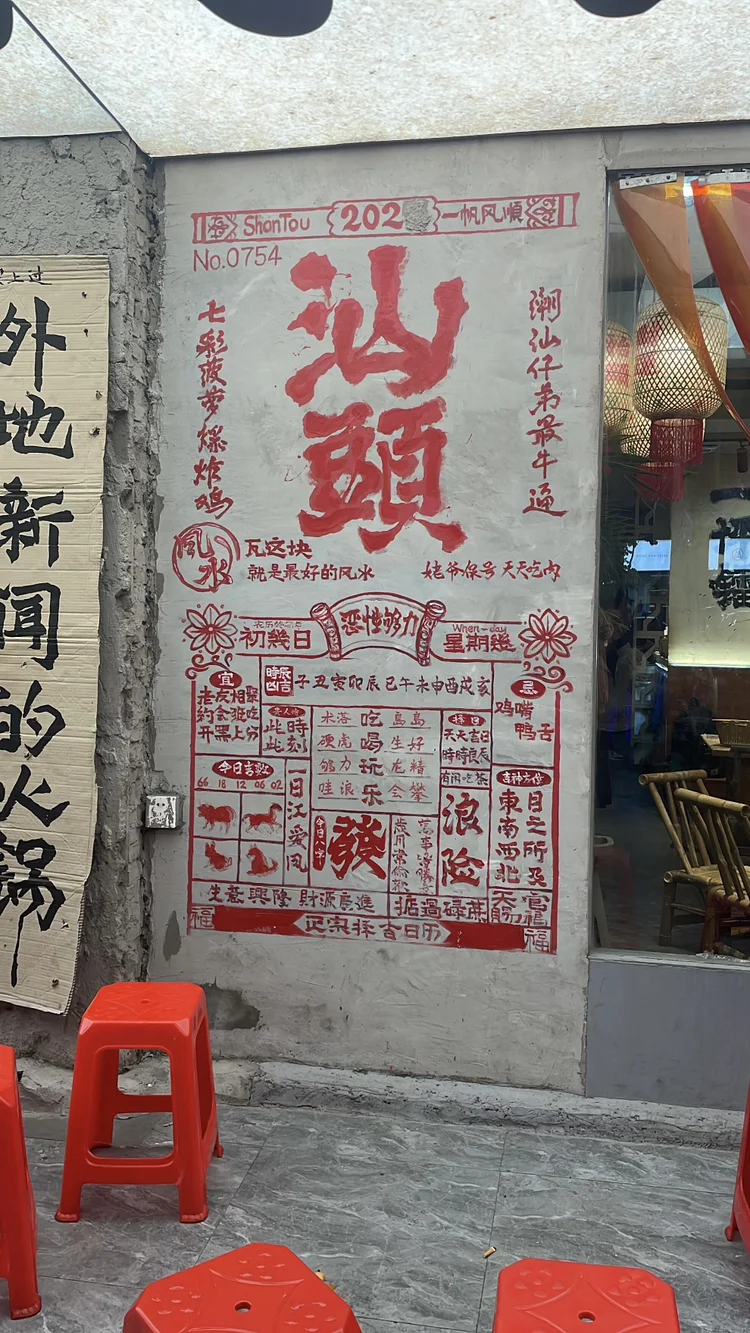 外地新闻的火锅
ShanTou 202 一帆风順
No.0754
汕頭
七彩菠萝爆炸鸡
潮汕仔弟最牛逼
風水
瓦这块
就是最好的风水
姥爷保号 天天吃肉
初幾日
恶性够力
When-day
星期幾
宜
老友相聚
约会逛吃
开黑上分
時辰凶吉
子丑寅卯辰巳午未申酉戌亥
忌
鸡嘴
鸭舌
此時
此刻
吃喝玩乐
硬虎
够力
哇浪
生好
龙精
择日
天天吉日
時時良辰
有闲吃茶
今日吉数
66 18 12 06 02
一日江爱凤
今日八字
發
浪险
目之所及
東南西北
生意興隆 財源廣進
掂過碌蔗
福
正宗择吉日历
福